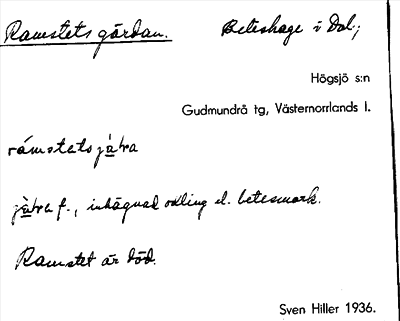 Ramstets gärdan. Beteshage i Dal;
Högsjö s:n
Gudmundrå tg, Västernorrlands l.
rámstets jàtra
jàtra f., inhägnad odling el. betesmark.
Ramstet är död.
Sven Hiller 1936.